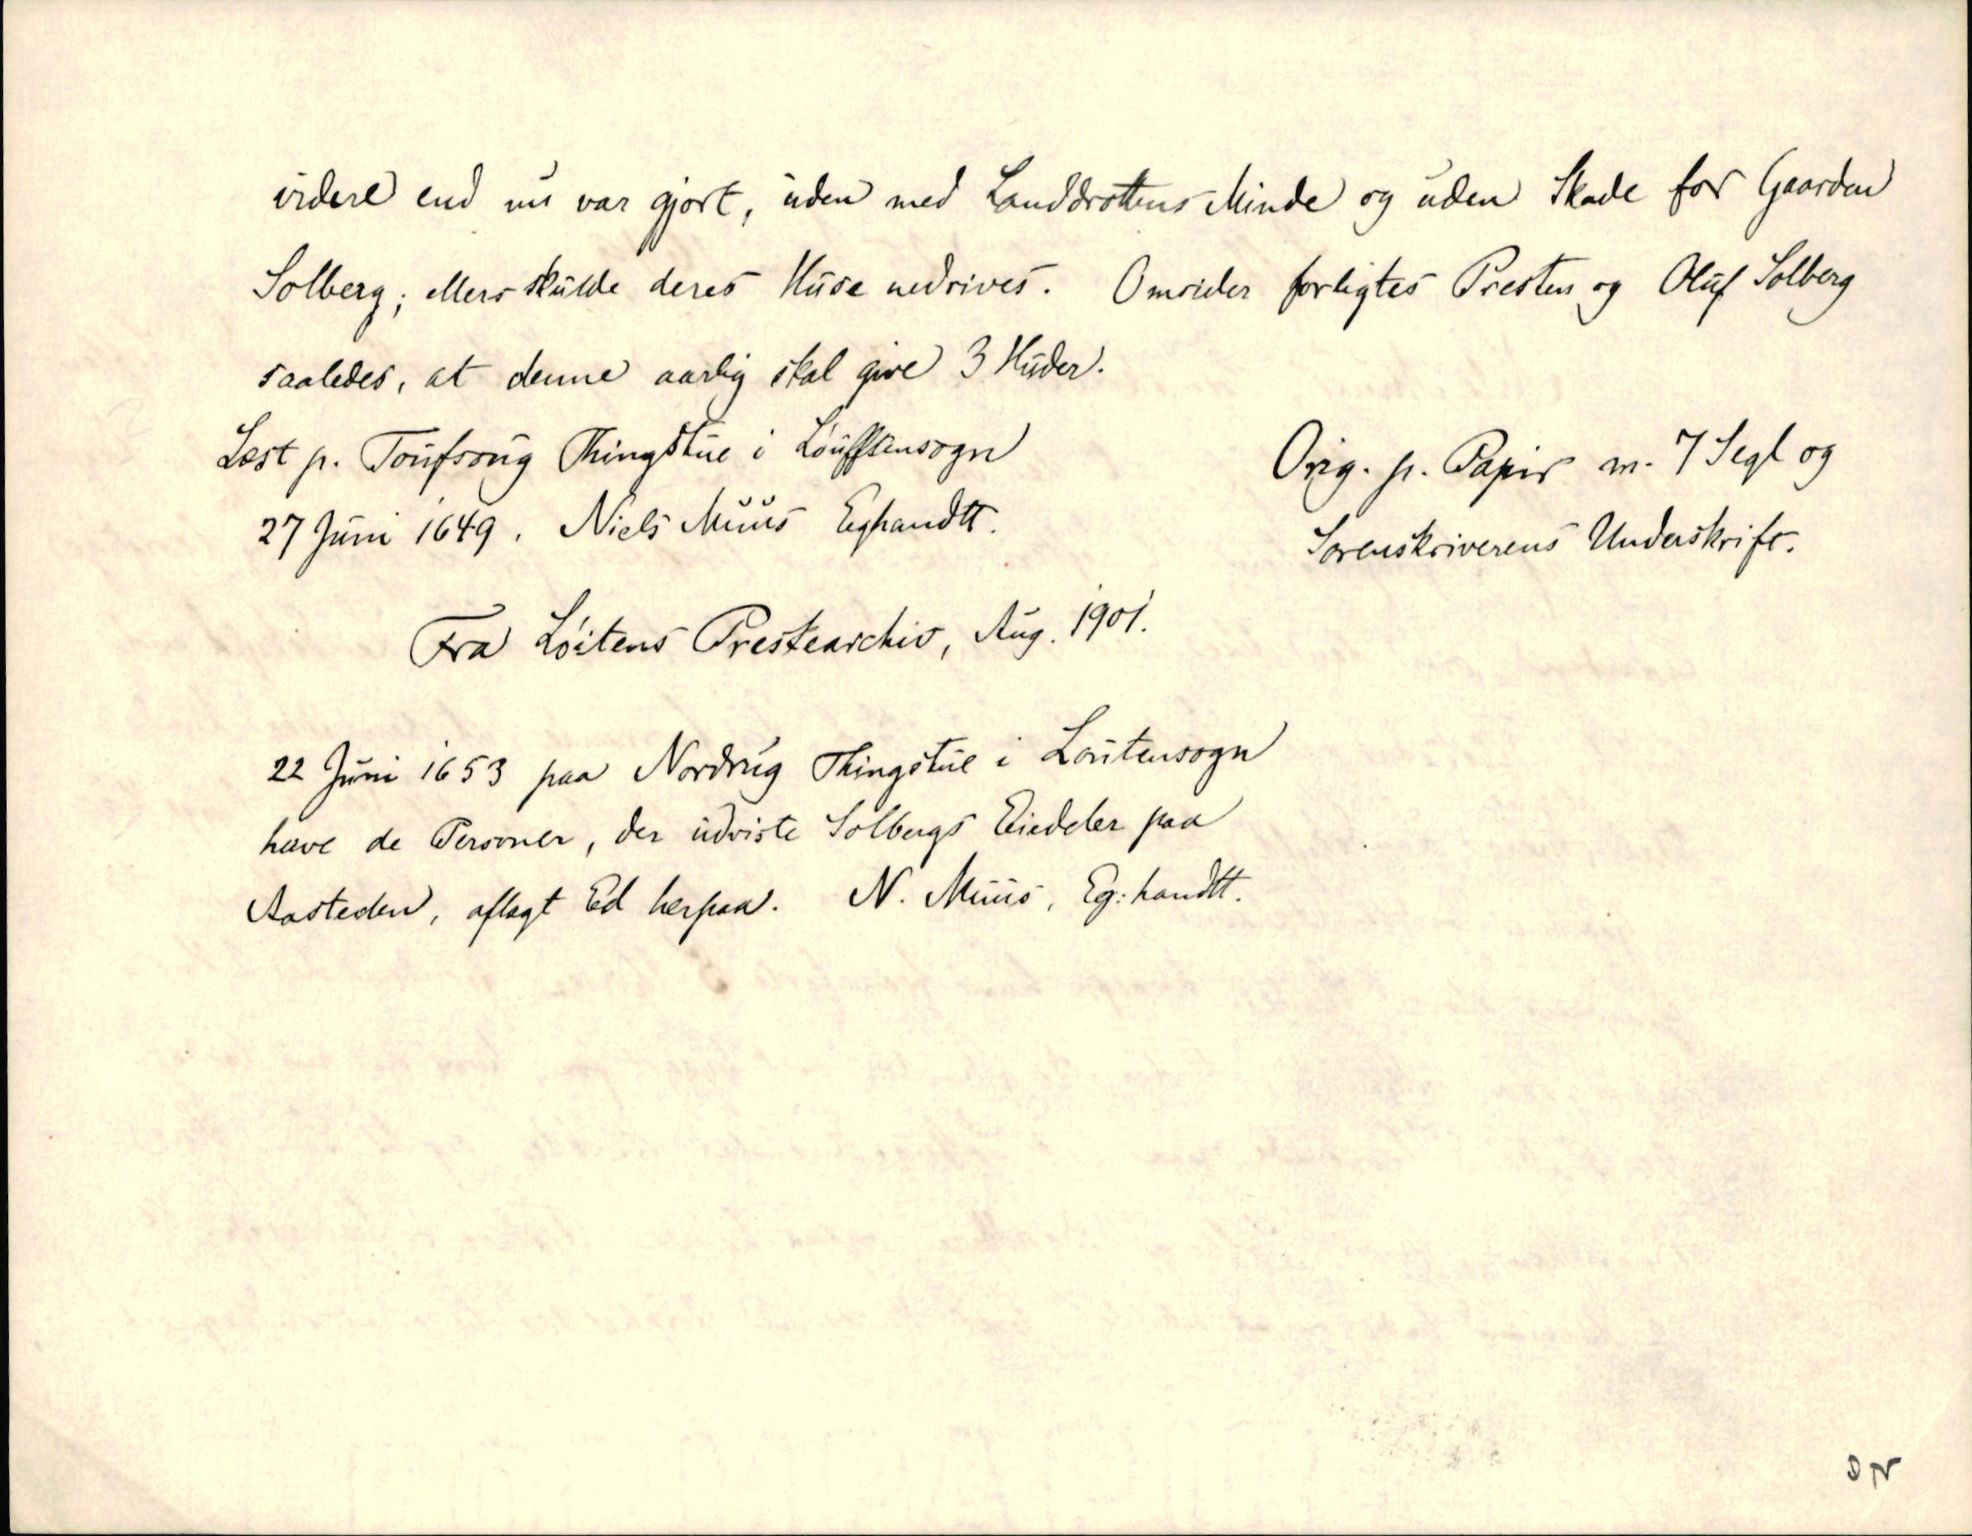 videre end nu var gjort, uden med Landdrottens Minde og uden Skade for Gaarden
Solberg; ellers skulde deres Huse nedrives. Omsider forligtes Presten og Oluf Solberg
saaledes, at denne aarlig skal give 3 Huder.
Læst p. Toufsoug Thingstue i Løufftensogn
27 Juni 1649. Niels Muus Eghandtt.
Orig. p. Papir m. 7 Segl og
Sorenskriverens Underskrift.
Fra Løitens Prestearchiv, Aug. 1901.
22 Juni 1653 paa Nordrug Thingstue i Løutensogn
have de Personer, der udviste Solbergs Eiedeler paa
Aasteden, aflagt Ed herpaa. N. Muus, Eg: handtt.